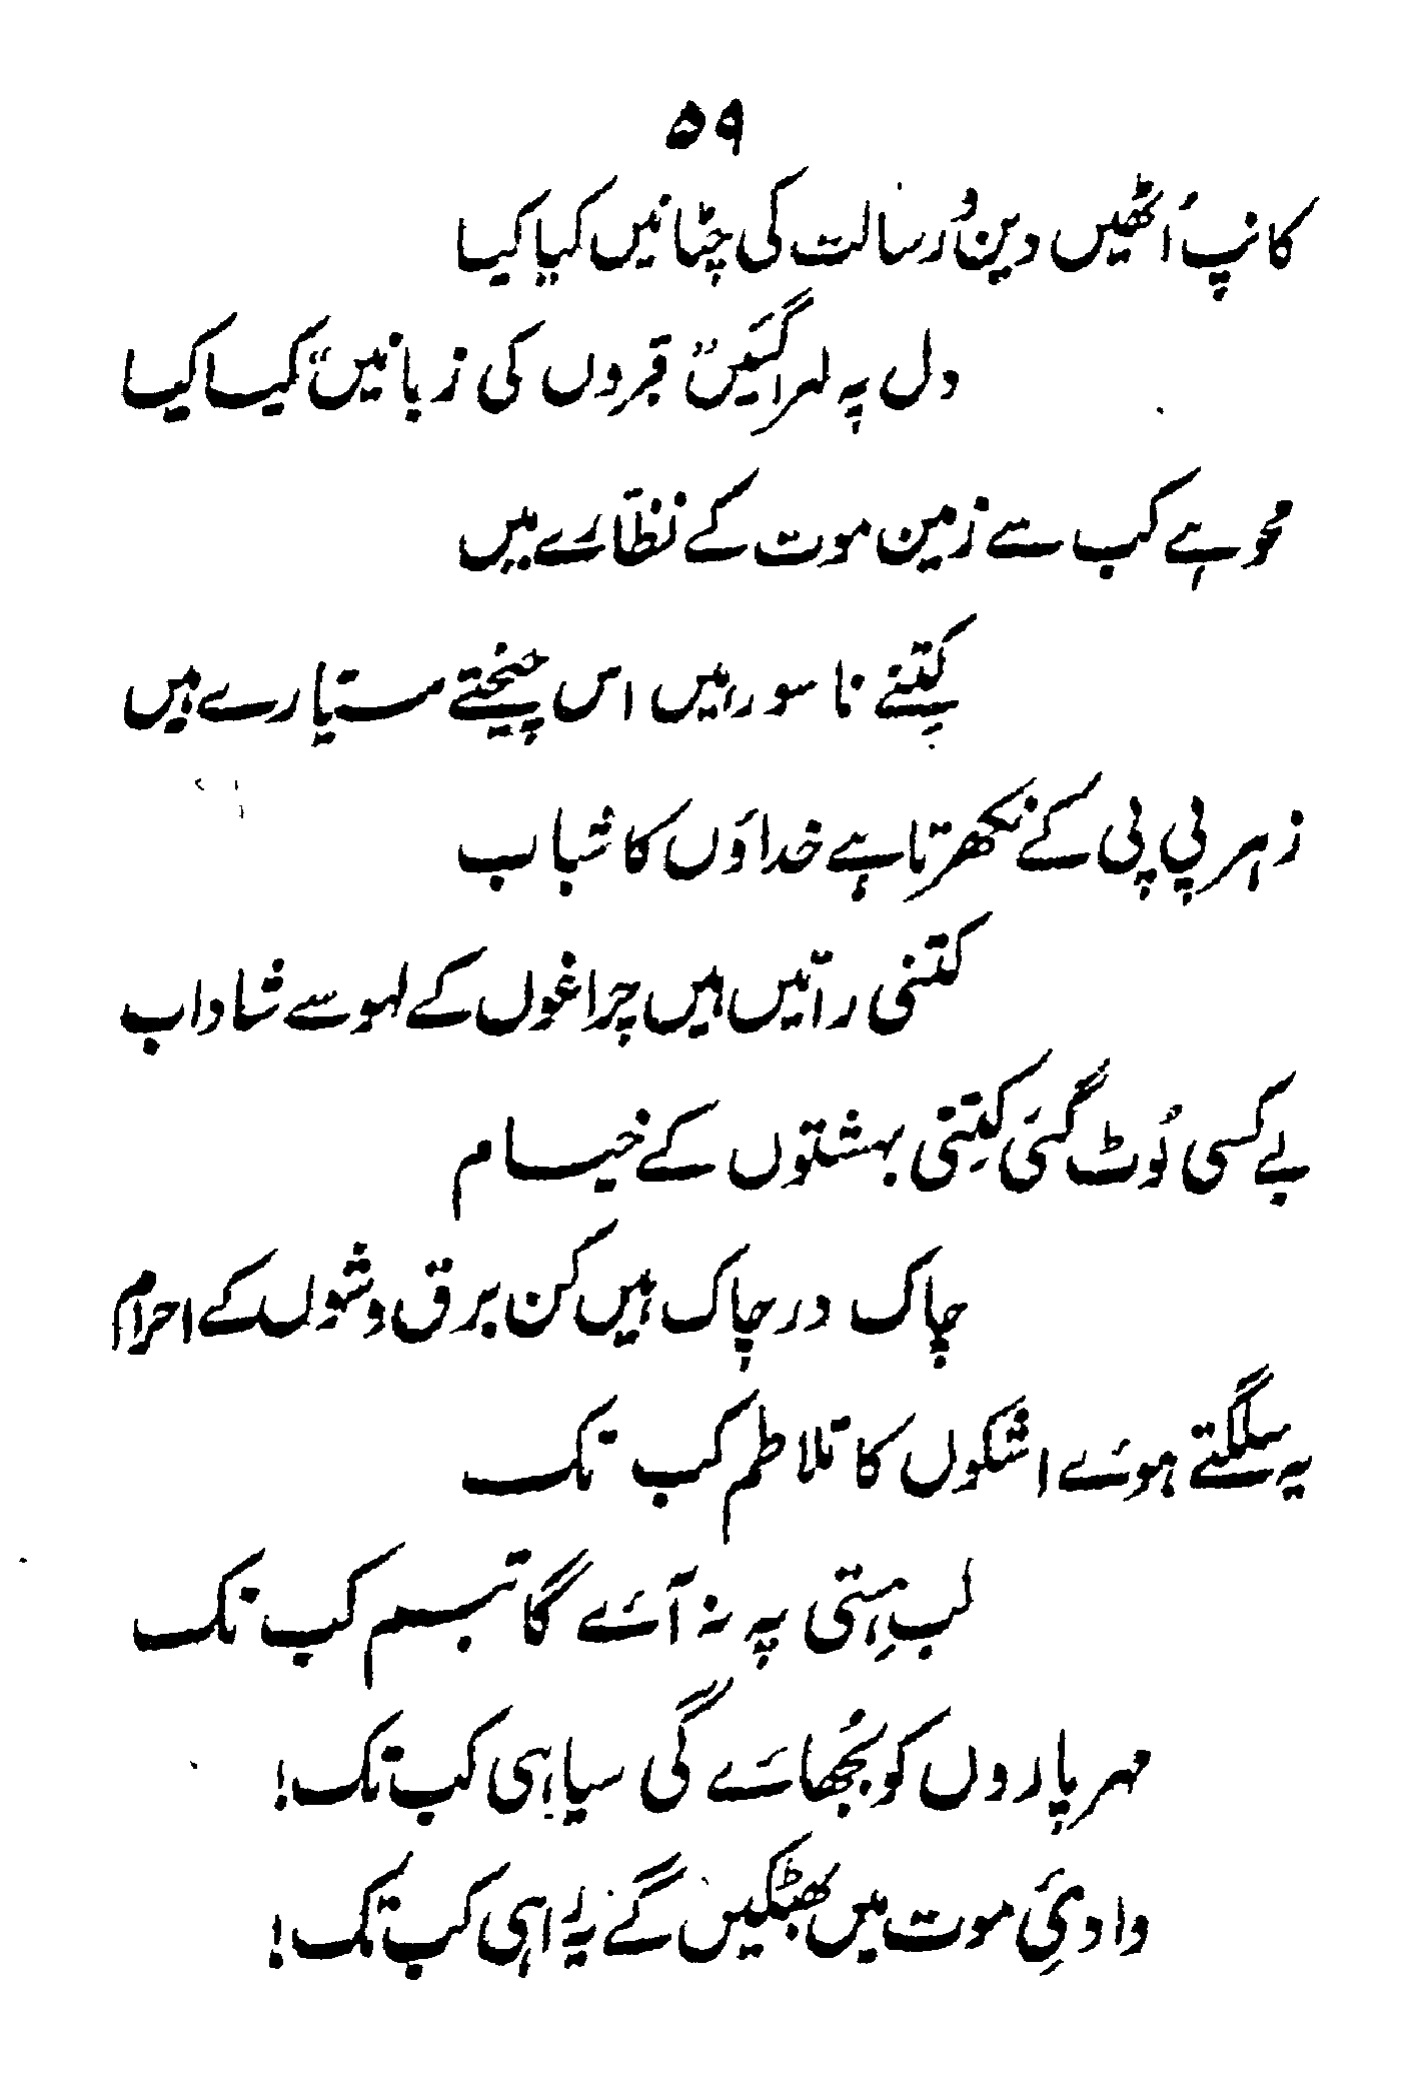 ۵۹
کانپ اُٹھیں دین و رسالت کی چٹانیں کیا کیا
دل پہ لہرا گئیں قبروں کی زبانیں کیا کیا
محو ہے کب سے زمین موت کے نظّارے میں
کتنے ناسور ہیں اس چیختے سیّارے میں
زہر پی پی کے نکھرتا ہے خداؤں کا شباب
کتنی راتیں ہیں چراغوں کے لہو سے شاداب
بے کسی لُوٹ گئی کتنی بہشتوں کے خیام
چاک در چاک ہیں کن برق وشوں کے احرام
یہ سلگتے ہوئے اشکوں کا تلاطم کب تک
لبِ ہستی پہ نہ آئے گا تبسم کب تک
مہر پاروں کو بُجھائے گی سیاہی کب تک!
وادیِٔ موت میں بھٹکیں گے یہ راہی کب تک!